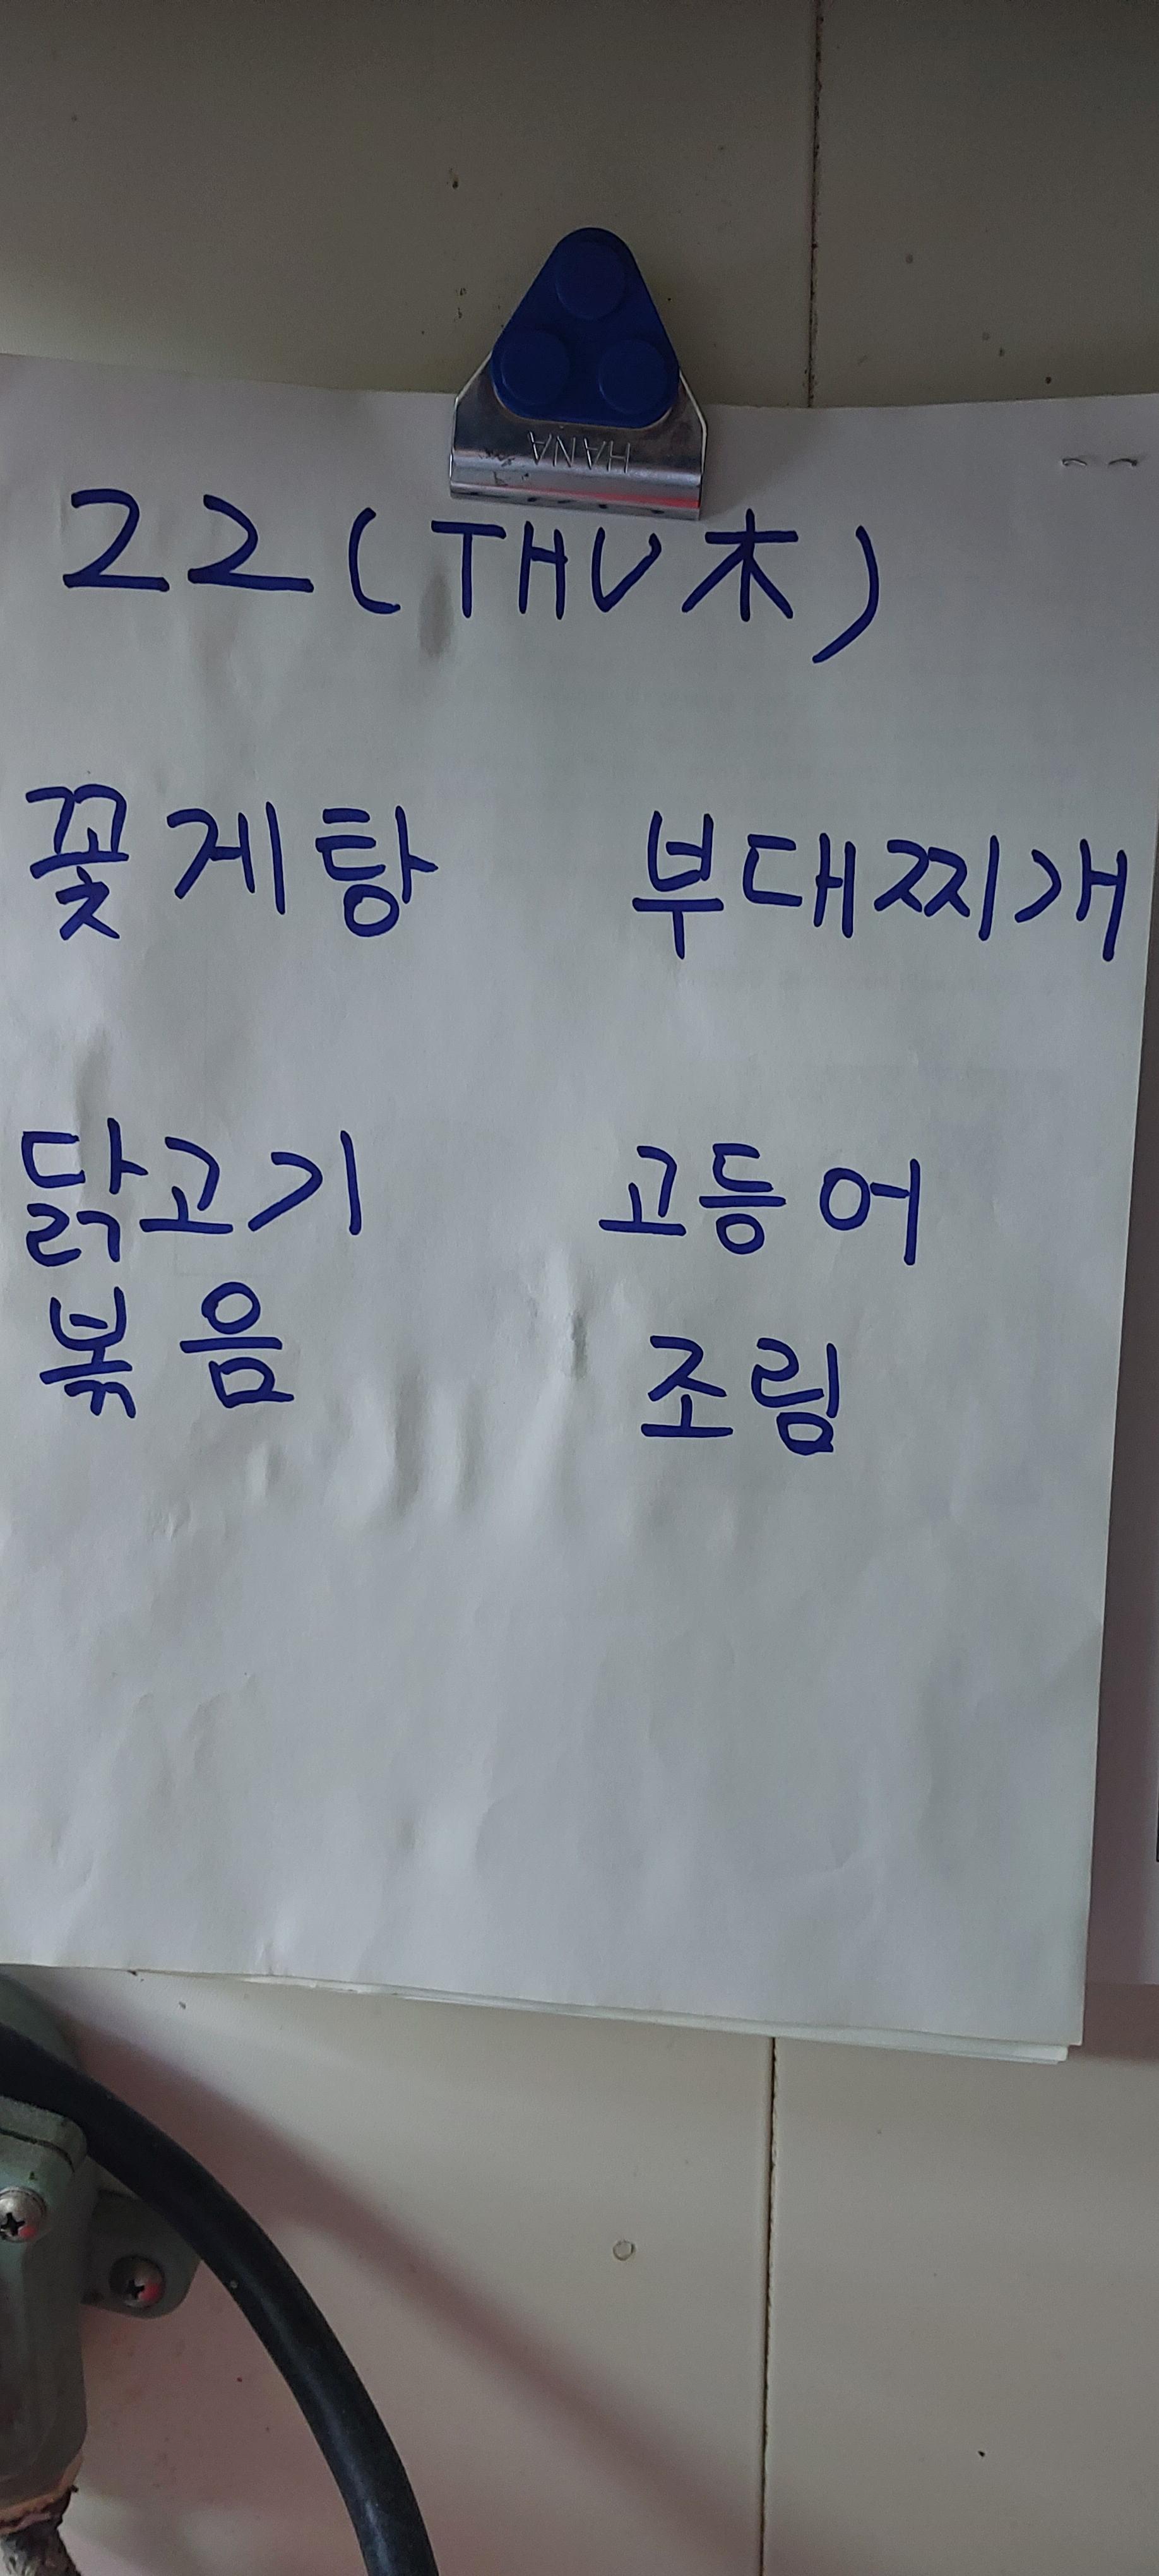 HANA
22 (THU 木)
꽃게탕 부대찌개
닭고기 고등어
볶음 조림